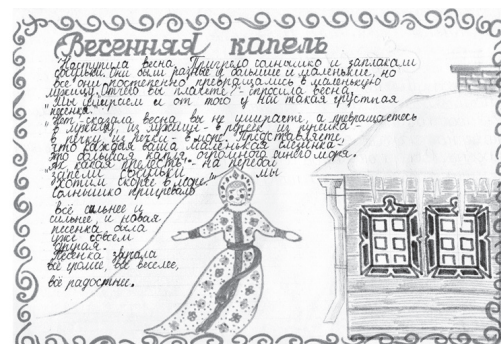 Весенняя капель
Наступила весна. Пригрело солнышко и заплакали
сосульки. Они были разные и большие и маленькие, но
все они постепенно превращались в маленькую
лужицу. Отчего вы плачете? - спросила весна.
"Мы умираем и от того у нас такая грустная
песенка."
"Нет - сказала весна, вы не умираете, а превращаетесь
в лужицу, из лужицы - в ручеек, из ручейка -
в речку, из речки - в море. Представляете,
что каждая ваша маленькая слезинка -
это большая капля огромного синего моря.
запели сосульки - мы
хотим скорее в море."
Солнышко пригревало
всё сильнее и
сильнее, и новая
песенка была
уже совсем
другая.
Песенка звучала
всё громче, всё веселее,
всё радостнее.